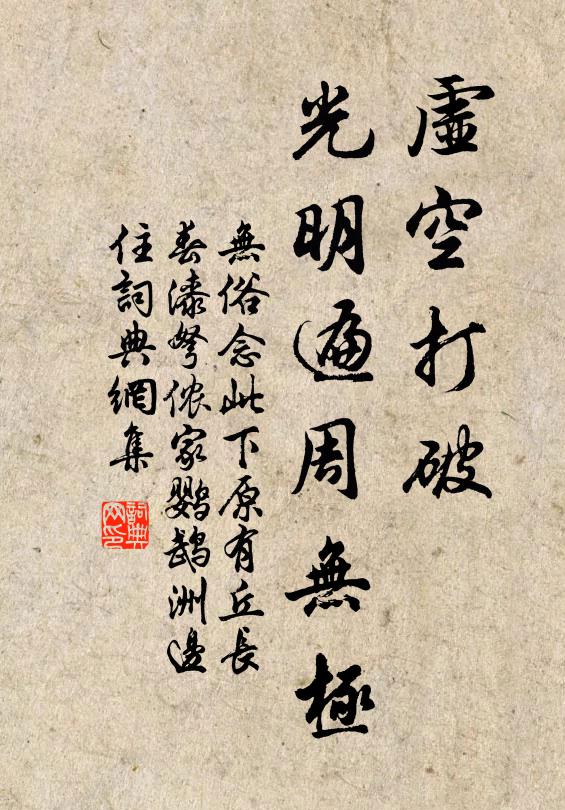 虛空打破
光明遍周無極
無俗念此下原有丘長
春瀑弩侬家鹦鹉洲邊
住詞典網集
詞典
网印